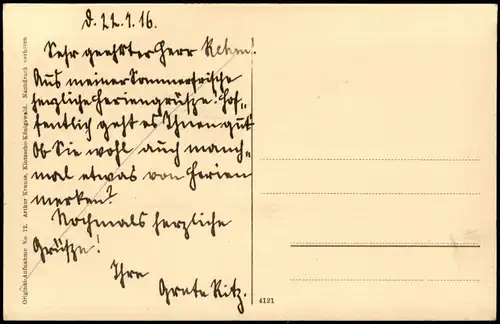 d. 22.7.16.
Sehr geehrter Herr Rehm!
Aus meiner Sommerfrische
herzliche Feriengrüsze. Hof-
fentlich geht es Ihnen gut
Ob Sie wohl auch manch-
mal etwas von Ferien
merken?
Nochmals herzliche
Grüsze!
Ihre
Grete Ritz.
Original-Aufnahme No. 12. Arthur Krause, Klotzsche-Königswald. Nachdruck verboten.
4121